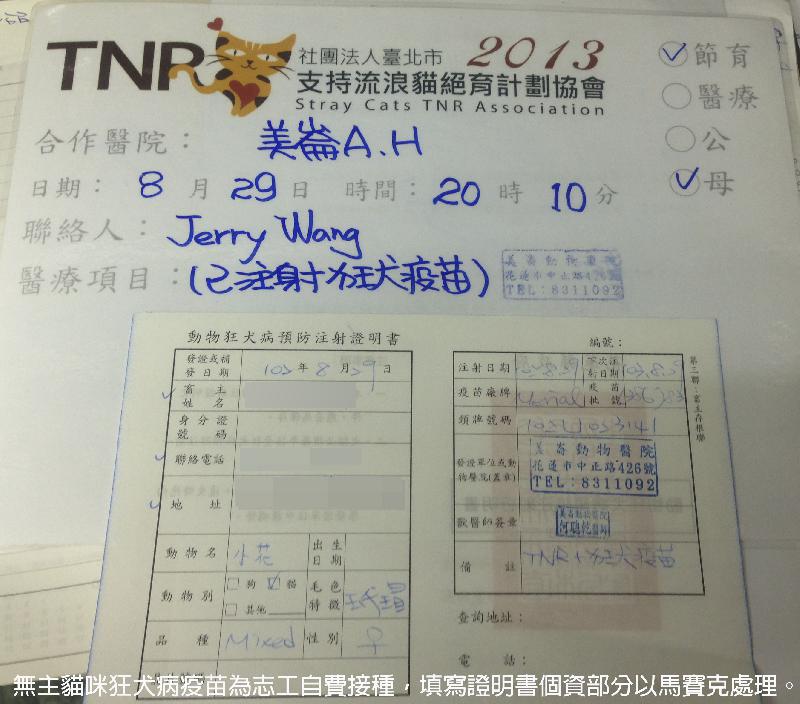 TNR 社團法人臺北市 2013
支持流浪貓絕育計劃協會
Stray Cats TNR Association
節育
醫療
公
母
合作醫院： 美崙A.H
日期： 8 月 29 日 時間： 20 時 10 分
聯絡人： Jerry Wang
醫療項目： (已注射狂犬疫苗)
美崙動物醫院
花蓮市中正路426號
TEL：8311092
動物狂犬病預防注射證明書
發證或補發日期 103 年 8 月 29 日
畜主姓名
身分證號碼
聯絡電話
地址
動物名 小花 出生日期
動物別 狗 貓 其他 毛色特徵 玳瑁
品種 Mixed 性別 ♀
編號：
注射日期 下次注射日期
疫苗廠牌 疫苗批號
頒牌號碼
發證單位或動物醫院(蓋章) 美崙動物醫院
花蓮市中正路426號
TEL：8311092
獸醫師簽章 美崙動物醫院
備註 TNR+狂犬疫苗
查詢地址：
電話：
第三聯：畜主存根聯
無主貓咪狂犬病疫苗為志工自費接種，填寫證明書個資部分以馬賽克處理。